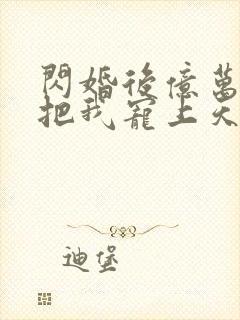 閃婚後億萬
把我寵上天
迪堡